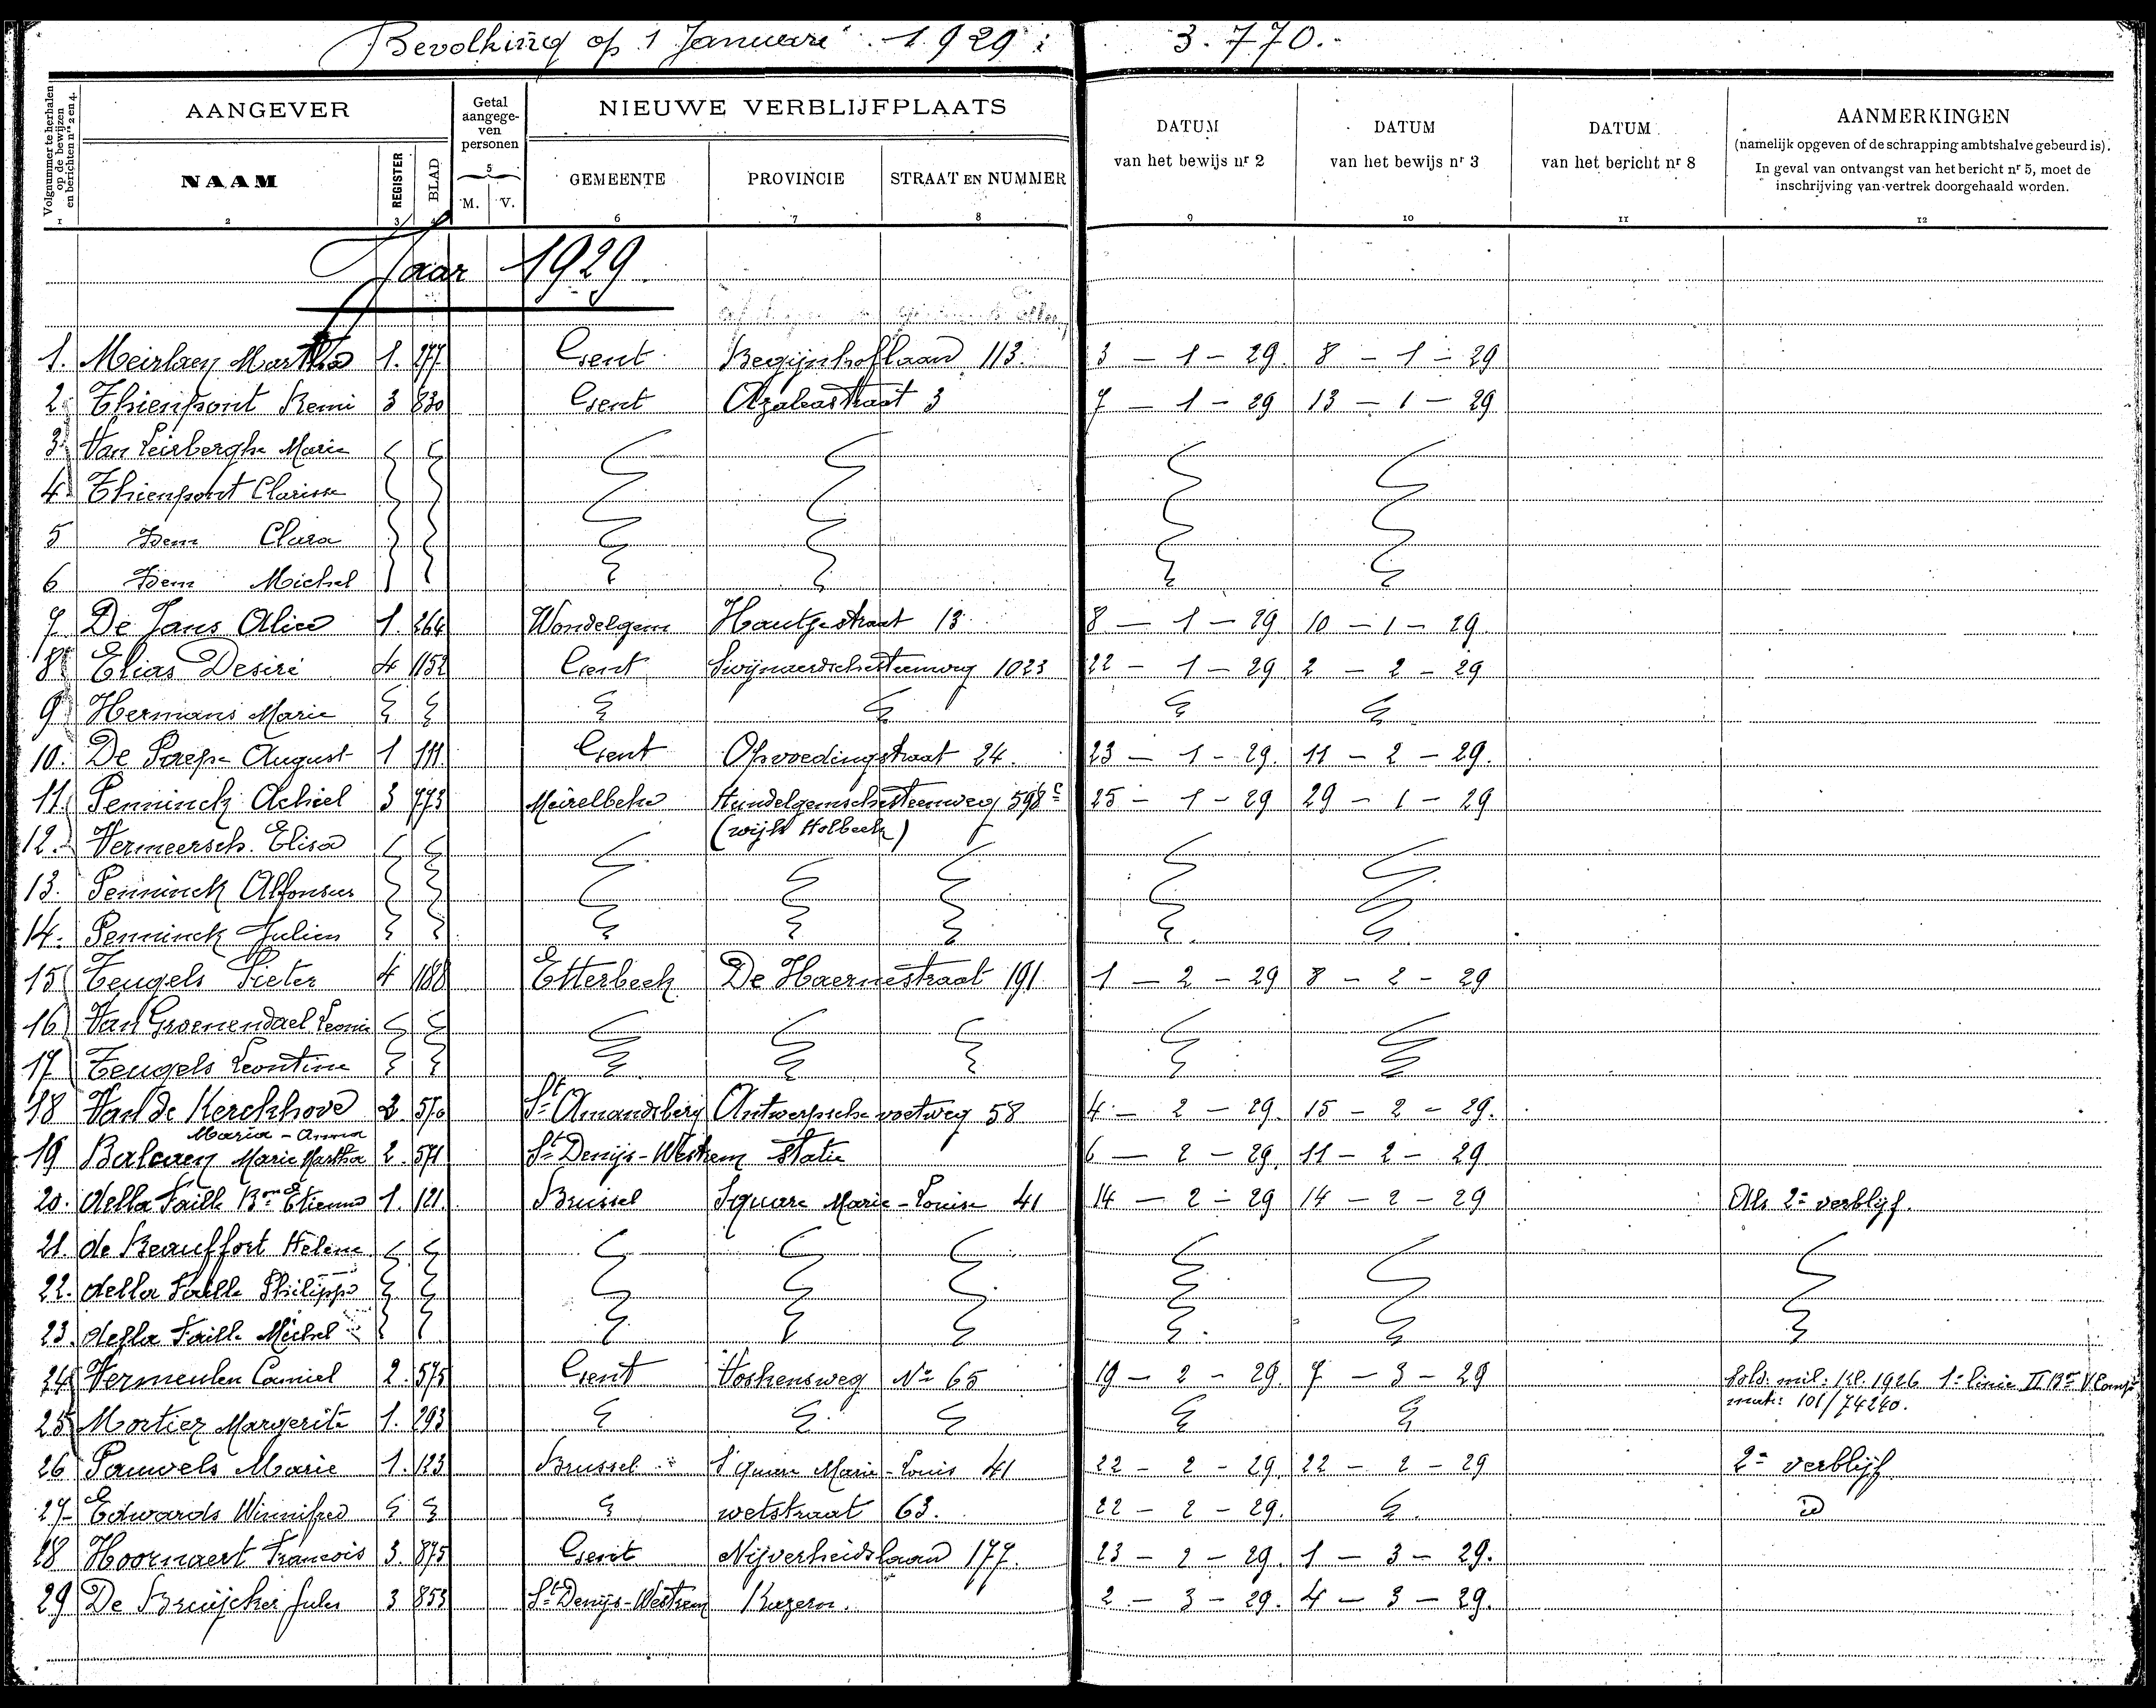 Bevolking op 1 Januari 1929 : 3.770.-
Volgnummer te herhalen op de bewijzen en berichten nrs 2 en 4.
AANGEVER
Getal aangegeven personen
NIEUWE VERBLIJFPLAATS
DATUM van het bewijs nr 2
DATUM van het bewijs nr 3
DATUM van het bericht nr 8
AANMERKINGEN
(namelijk opgeven of de schrapping ambtshalve gebeurd is).
In geval van ontvangst van het bericht nr 5, moet de
inschrijving van vertrek doorgehaald worden.
NAAM REGISTER BLAD M. V. GEMEENTE PROVINCIE STRAAT EN NUMMER
1 2 3 4 5 6 7 8 9 10 11 12
Jaar 1929
1. Meirlaen Martha 1. 277. Gent Begijnhoflaan 113. 3 - 1 - 29. 8 - 1 - 29
2 Thienpont Remi 3 830 Gent Azaleastraat 3 7 - 1 - 29 13 - 1 - 29
3 Van Leirberghe Marie
4 Thienpont Clarisse
5 Idem Clara
6 Idem Michel
7 De Jans Alice 1. 264 Wondelgem Houtjestraat 13 8 - 1 - 29 10 - 1 - 29
8 Elias Desiré 4 1152 Gent Swijnaerdschesteenweg 1023 22 - 1 - 29 2 - 2 - 29
9 Hermans Marie
10. De Paepe August 1 111 Gent Opvoedingstraat 24. 23 - 1 - 29. 11 - 2 - 29.
11 Penninck Achiel 3 773 Meirelbeke Hundelgemschesteenweg 598c 25 - 1 - 29 29 - 1 - 29
(wijk Holbeek)
12. Vermeersch Elisa
13. Penninck Alfonsus
14. Penninck Julien
15 Teugels Pieter 4 1188 Etterbeek De Haernestraat 191 1 - 2 - 29 8 - 2 - 29
16 Van Groenendael Leonie
17 Teugels Leontine
18 Van de Kerckhove 2 570 St Amandsberg Antwerpsche voetweg 58 4 - 2 - 29. 15 - 2 - 29.
Maria - Anna
19 Balcaen Marie Martha 2. 571 St Denijs-Westrem statie 6 - 2 - 29. 11 - 2 - 29
20. della Faille Bon Etienne 1. 121. Brussel Square Marie-Louise 41 14 - 2 - 29 14 - 2 - 29 Als 2e verblijf.
21. de Beauffort Hélène
22. della Faille Philippe
23. della Faille Michel
24 Vermeulen Camiel 2. 575 Gent Voskensweg No 65 19 - 2 - 29. 7 - 3 - 29 Sold. mil: kl. 1926 1e linie II Bon V Comp.
matr: 101/74240.
25 Mortier Margerite 1. 293
26 Pauwels Marie 1. 123 Brussel Square Marie-Louis 41 22 - 2 - 29. 22 - 2 - 29 2e verblijf
27 Edwards Winnifred wetstraat 63. 22 - 2 - 29. id
28 Hoornaert Francois 3. 875 Gent Nijverheidslaan 177. 23 - 2 - 29. 1 - 3 - 29.
29 De Bruijcker Jules 3 853 St Denijs-Westrem Kazern. 2 - 3 - 29. 4 - 3 - 29.